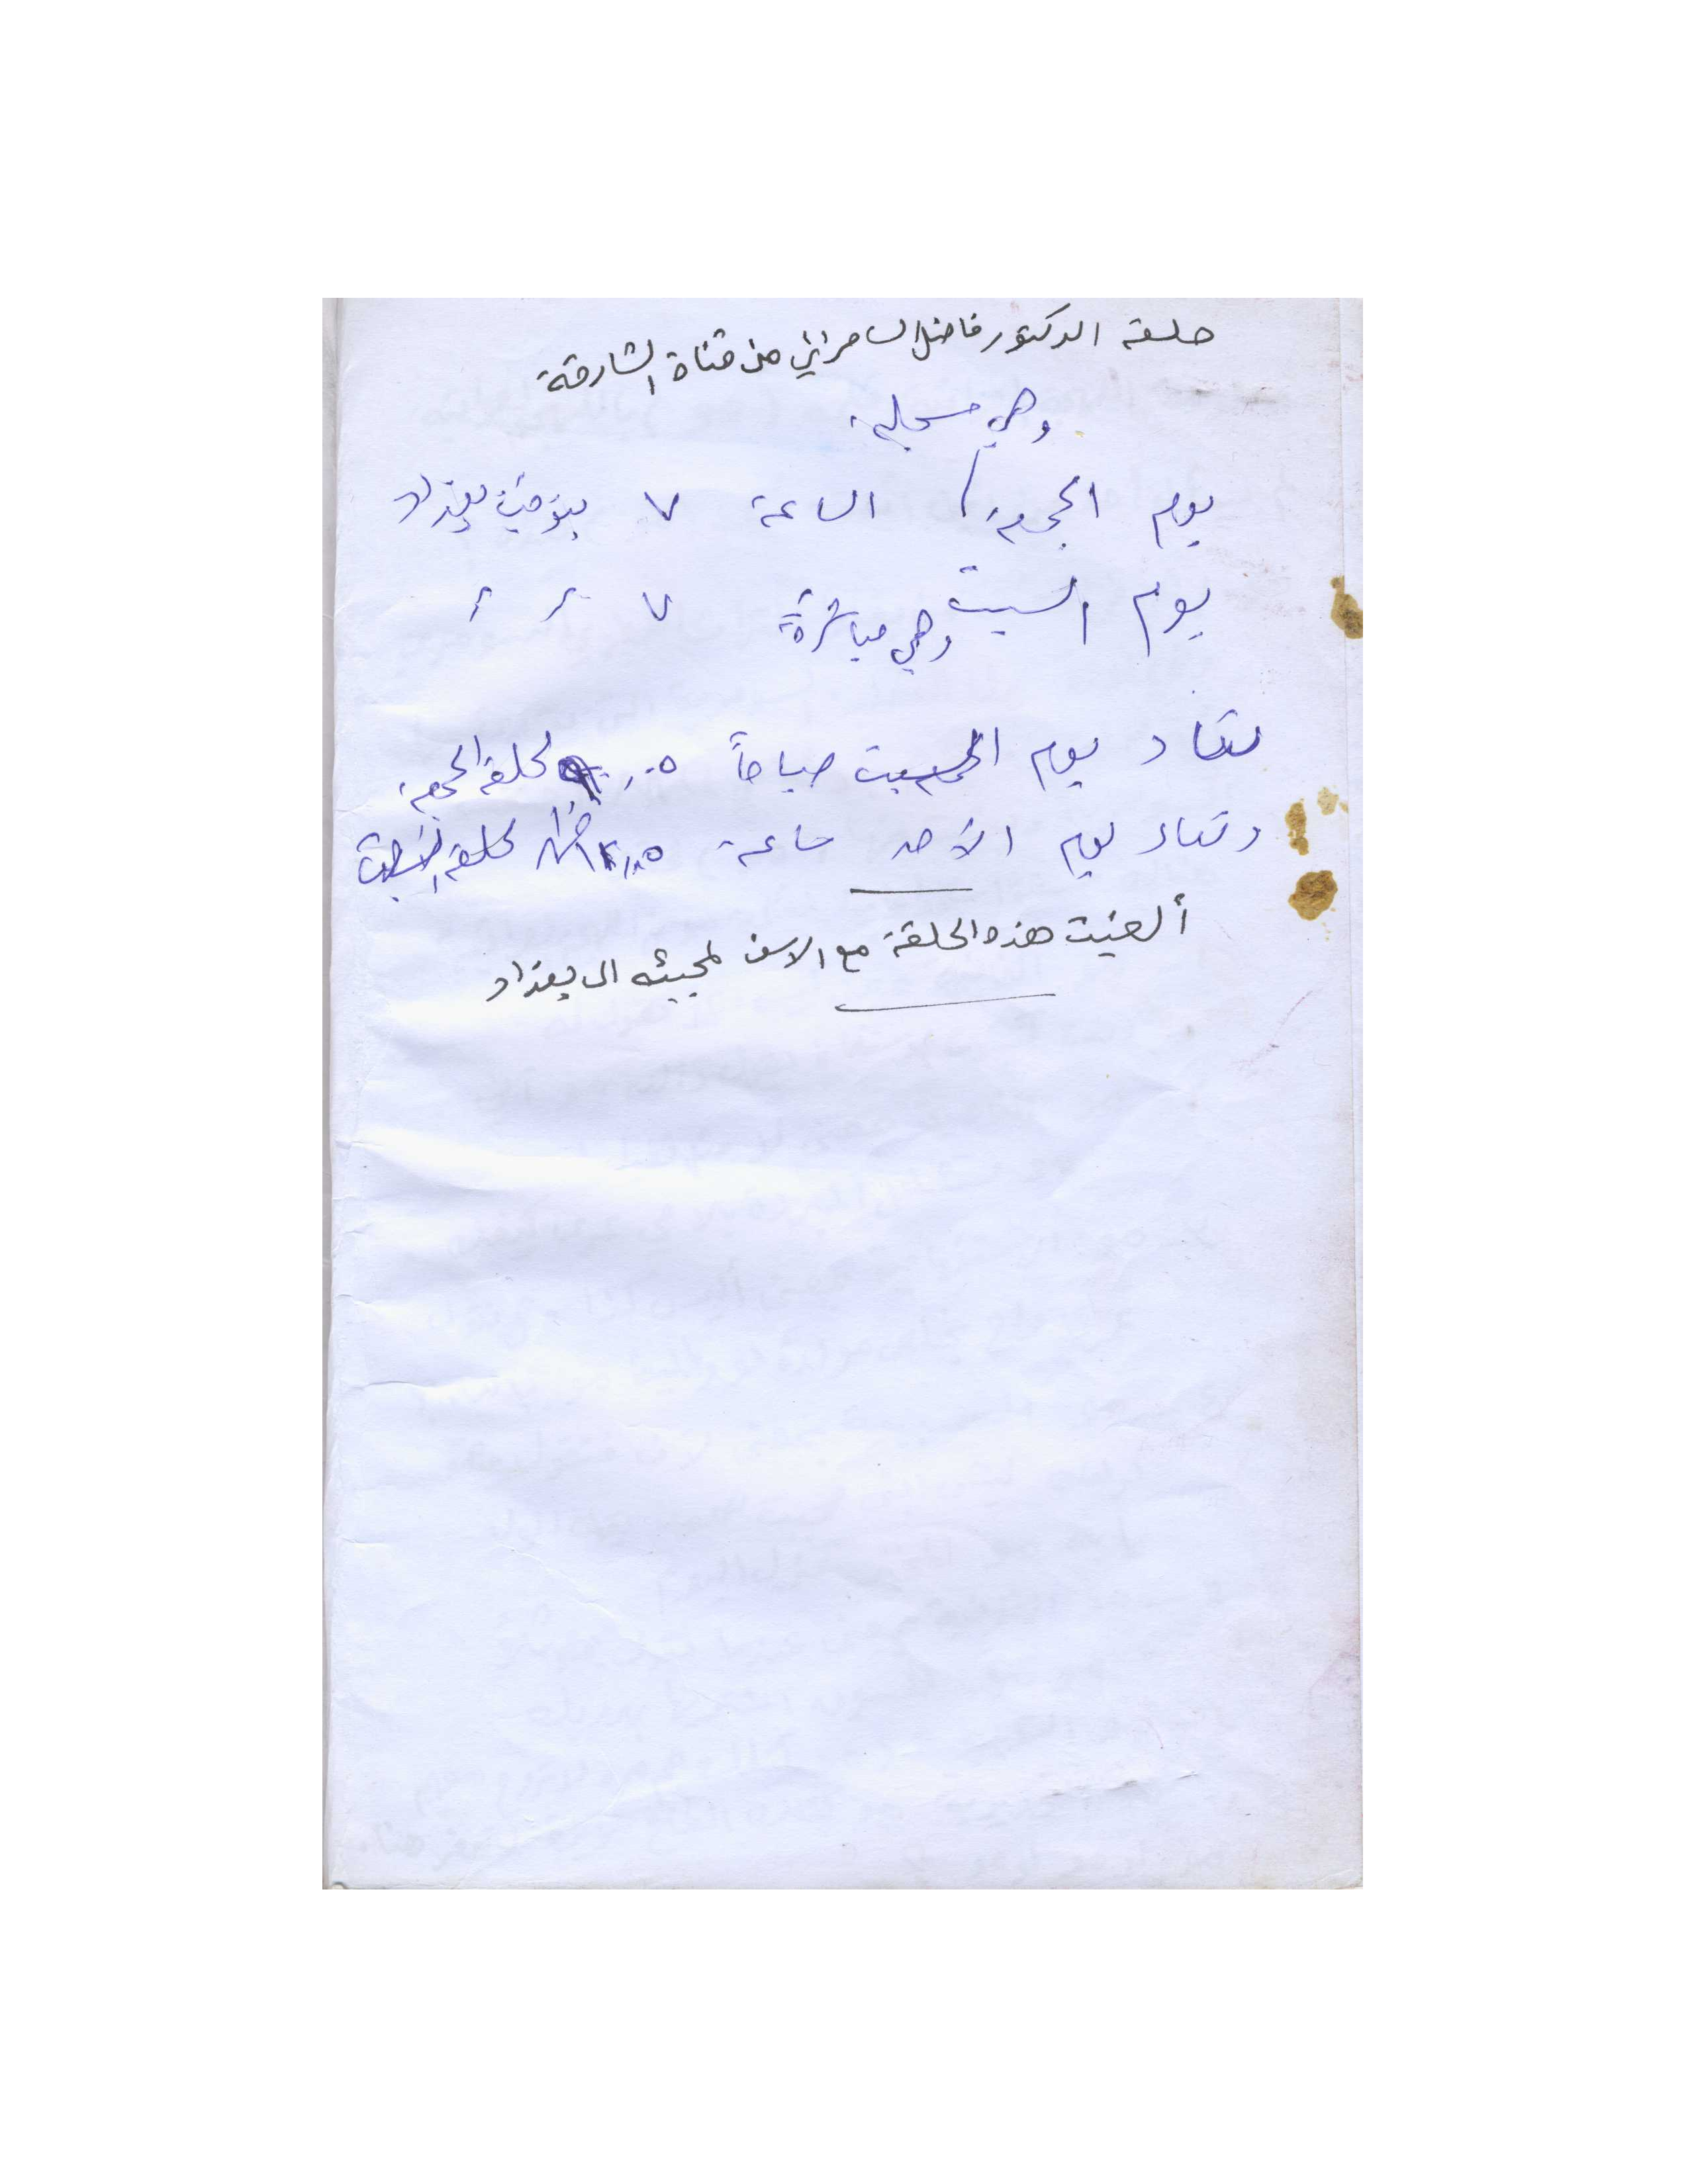 حلقة الدكتور فاضل السامرائي من قناة الشارقة
وهي مسجلة
يوم الجمعة / الساعة ٧ بتوقيت بغداد
يوم السبت ٧ = =
وهي مباشرة
تعاد يوم السبت صباحاً لحلقة الجمعة
وتعاد يوم الأحد ساعة لحلقة السبت
ألغيت هذه الحلقة مع الاسف لمجيئه الى بغداد